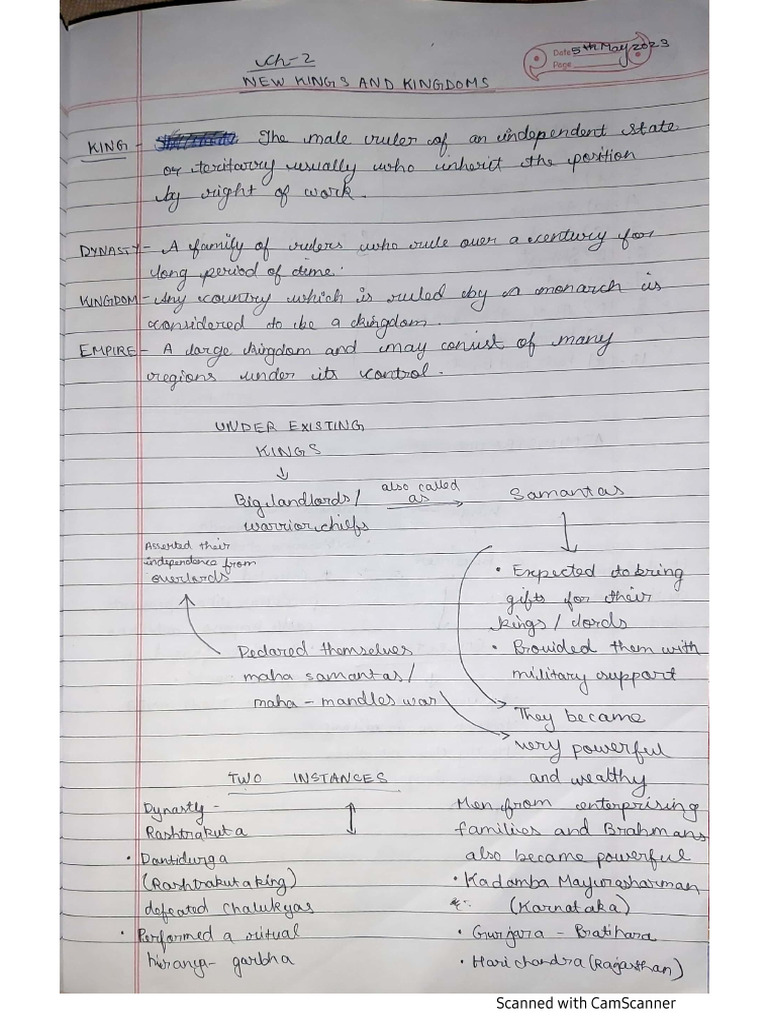 Ch-2
Date 5th May 2023
Page
NEW KINGS AND KINGDOMS
KING - The male ruler of an independent state
or teritarry usually who inherit the position
by right of work.
DYNASTY - A family of rulers who rule over a century for
long period of time.
KINGDOM - Any country which is ruled by a monarch is
considered to be a kingdom.
EMPIRE - A large kingdom and may consist of many
regions under its control.
UNDER EXISTING
KINGS
↓
Big landlords/
warrior chiefs
also called
as →
Samantas
↓
• Expected to bring
gifts for their
kings/lords
• Provided them with
military support
They became
very powerful
and wealthy
Declared themselves
maha samantas/
maha-mandles war
Asserted their
independence from
overlards
TWO INSTANCES
Dynasty -
Rashtrakuta
• Dantidurga
(Rashtrakuta king)
defeated Chalukyas
• Performed a ritual
hiranya-garbha
Men from enterprising
families and Brahmans
also became powerful
• Kadamba Mayurasharman
(Karnataka)
• Gurjara - Pratihara
• Harichandra (Rajasthan)
Scanned with CamScanner